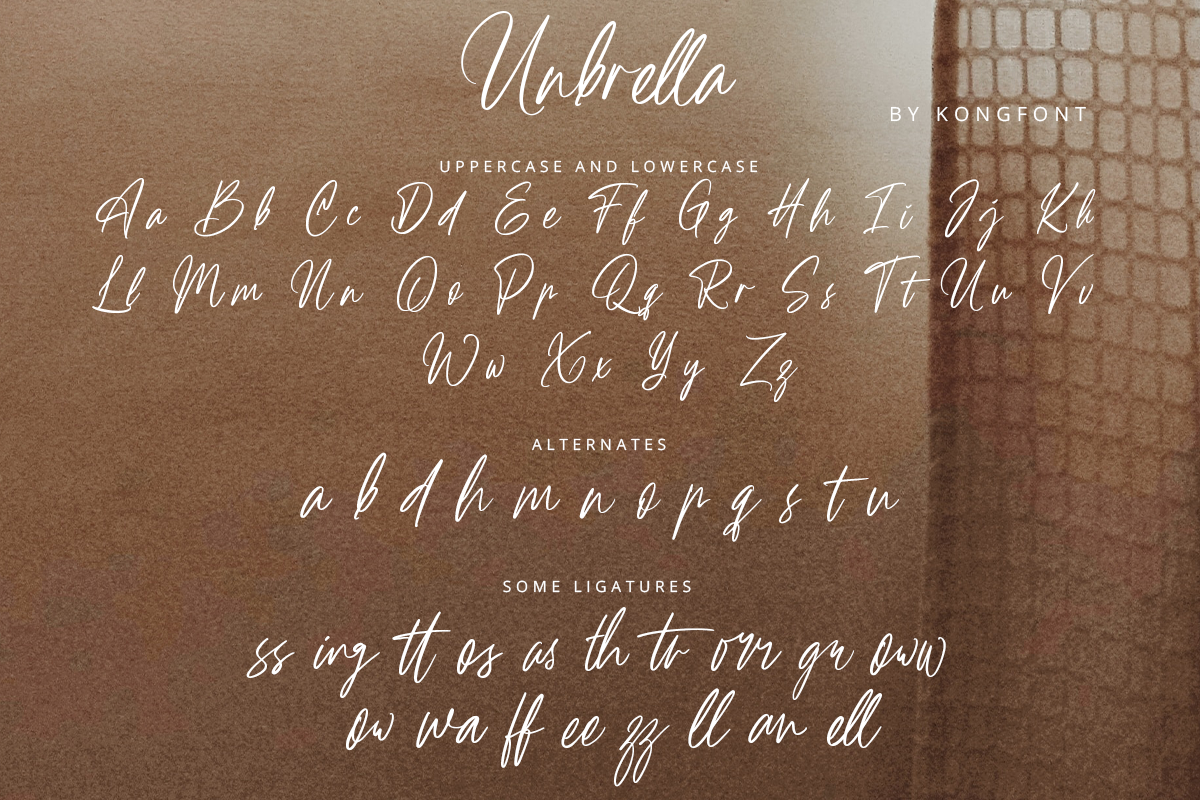 Unbrella
BY KONGFONT
UPPERCASE AND LOWERCASE
Aa Bb Cc Dd Ee Ff Gg Hh Ii Jj Kk
Ll Mm Nn Oo Pp Qq Rr Ss Tt Uu Vv
Ww Xx Yy Zz
ALTERNATES
a b d h m n o p q s t u
SOME LIGATURES
ss ing tt os as th tr orr gu oww
ow wa ff ee zz ll an ell